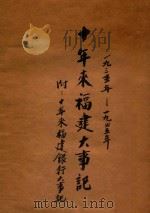 一九三五年——一九四五年
十年來福建大事記
附：十年來福建銀行大事記